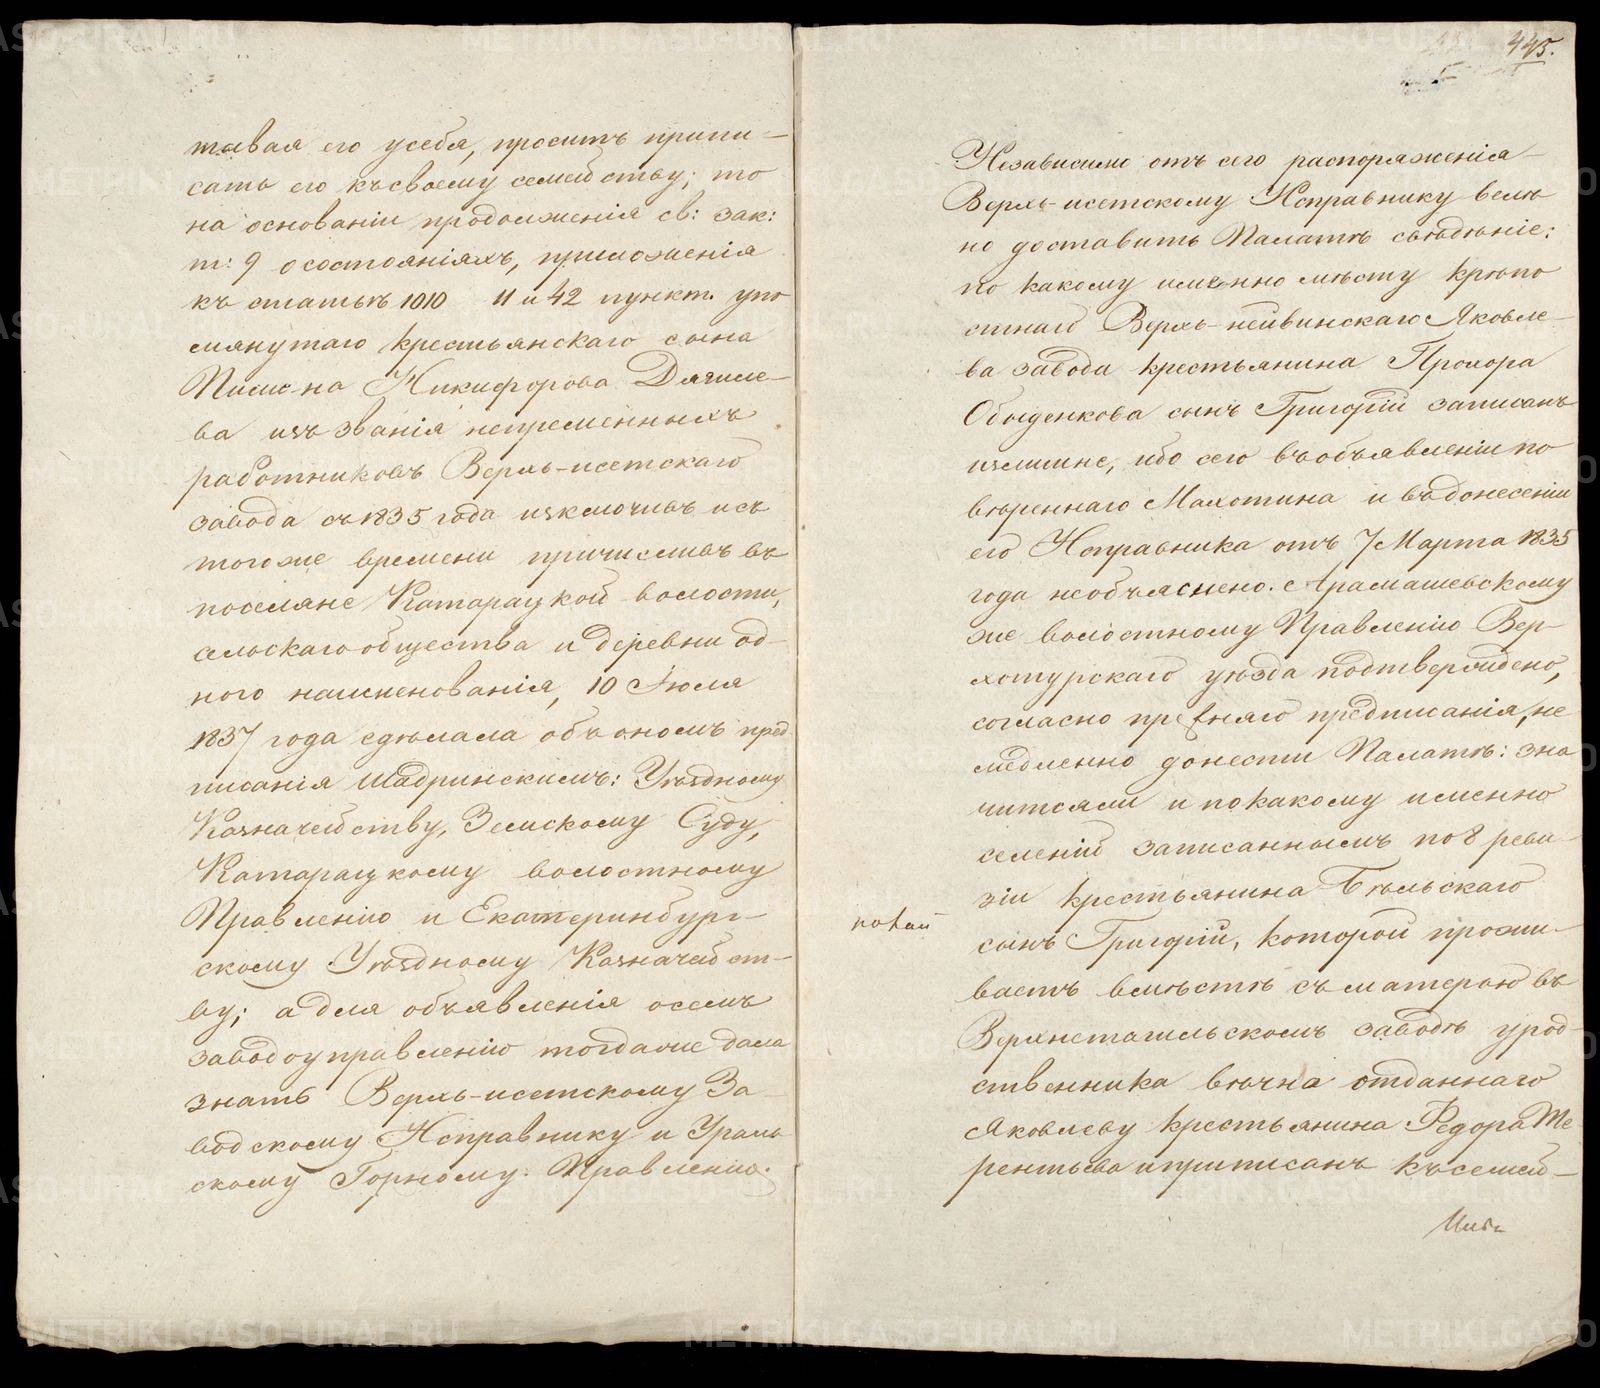 тывая его усебя, проситъ припи-
сать его къ своему семейству; то
на основаніи продолженія св: зак:
т: 9 осостояніяхъ, приложенія
къ статьѣ 1010 11 и 42 пункт. упо
мянутаго крестьянскаго сына
Никифорова
ва изъ званія непременныхъ
работниковъ Верхъ-исетскаго
завода съ 1835 года изключивъ исъ
тогоже времени причисливъ въ
поселяне Катарацкой волости,
сельскаго общества и деревни од-
ного наименованія, 10 Іюля
1837 года сдѣлала объ ономъ пред
писанія Шадринскимъ: Уѣздному
Казначейству, Земскому Суду,
Катарацкому волостному
Правленію и Екатеринбург-
скому Уѣздному Казначейст-
ву; а для объявленія осемъ
заводоуправленію тогдаже дала
знать Верхъ-исетскому За-
водскому Исправнику и Ураль
скому Горному Правленію.
445.
Независимо отъ сего распоряженія
Верхъ-исетскому Исправнику веле-
но доставить Палатѣ свѣдѣніе:
по какому именно мѣсту крѣпо
стнаго Верхъ-нейвинскаго Яковле-
ва завода крестьянина Прохора
Обыденкова сынъ Григорій записанъ
излишне, ибо сего въобъявленіи по
вѣреннаго Махотина и въдонесеніи
его Исправника отъ 7 Марта 1835
года необъяснено. Арамашевскому
же волостному Правленію Вер-
хотурскаго уѣзда подтверждено,
согласно прежняго предписанія, не
медленно донести Палатѣ: зна
читсяли и покакому именно
селенію записаннымъ по 8 реви-
зіи крестьянина Бѣльскаго
покаи
сынъ Григорій, которой прожи-
ваетъ вмѣстѣ съ матерью въ
Верхнетагильскомъ заводѣ урод-
ственника вѣчна отданнаго
Яковлеву крестьянина Федора Те
рентьева и приписанъ къ семей-